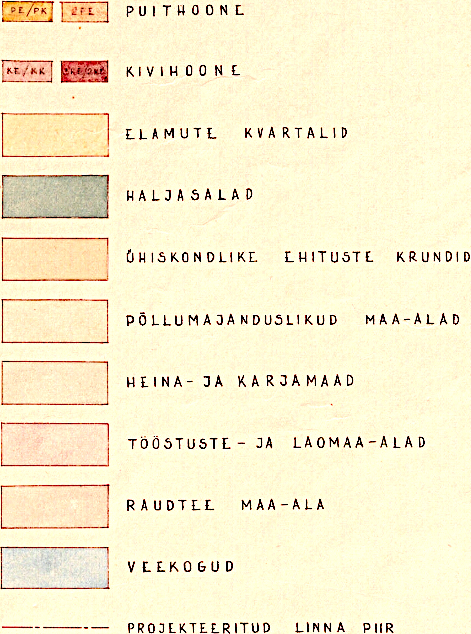 PE/PK PUITHOONE
KE/KK KIVIHOONE
ELAMUTE KVARTALID
HALJASALAD
ÜHISKONDLIKE EHITUSTE KRUNDID
PÕLLUMAJANDUSLIKUD MAA-ALAD
HEINA- JA KARJAMAAD
TÖÖSTUSTE- JA LAOMAA-ALAD
RAUDTEE MAA-ALA
VEEKOGUD
PROJEKTEERITUD LINNA PIIR